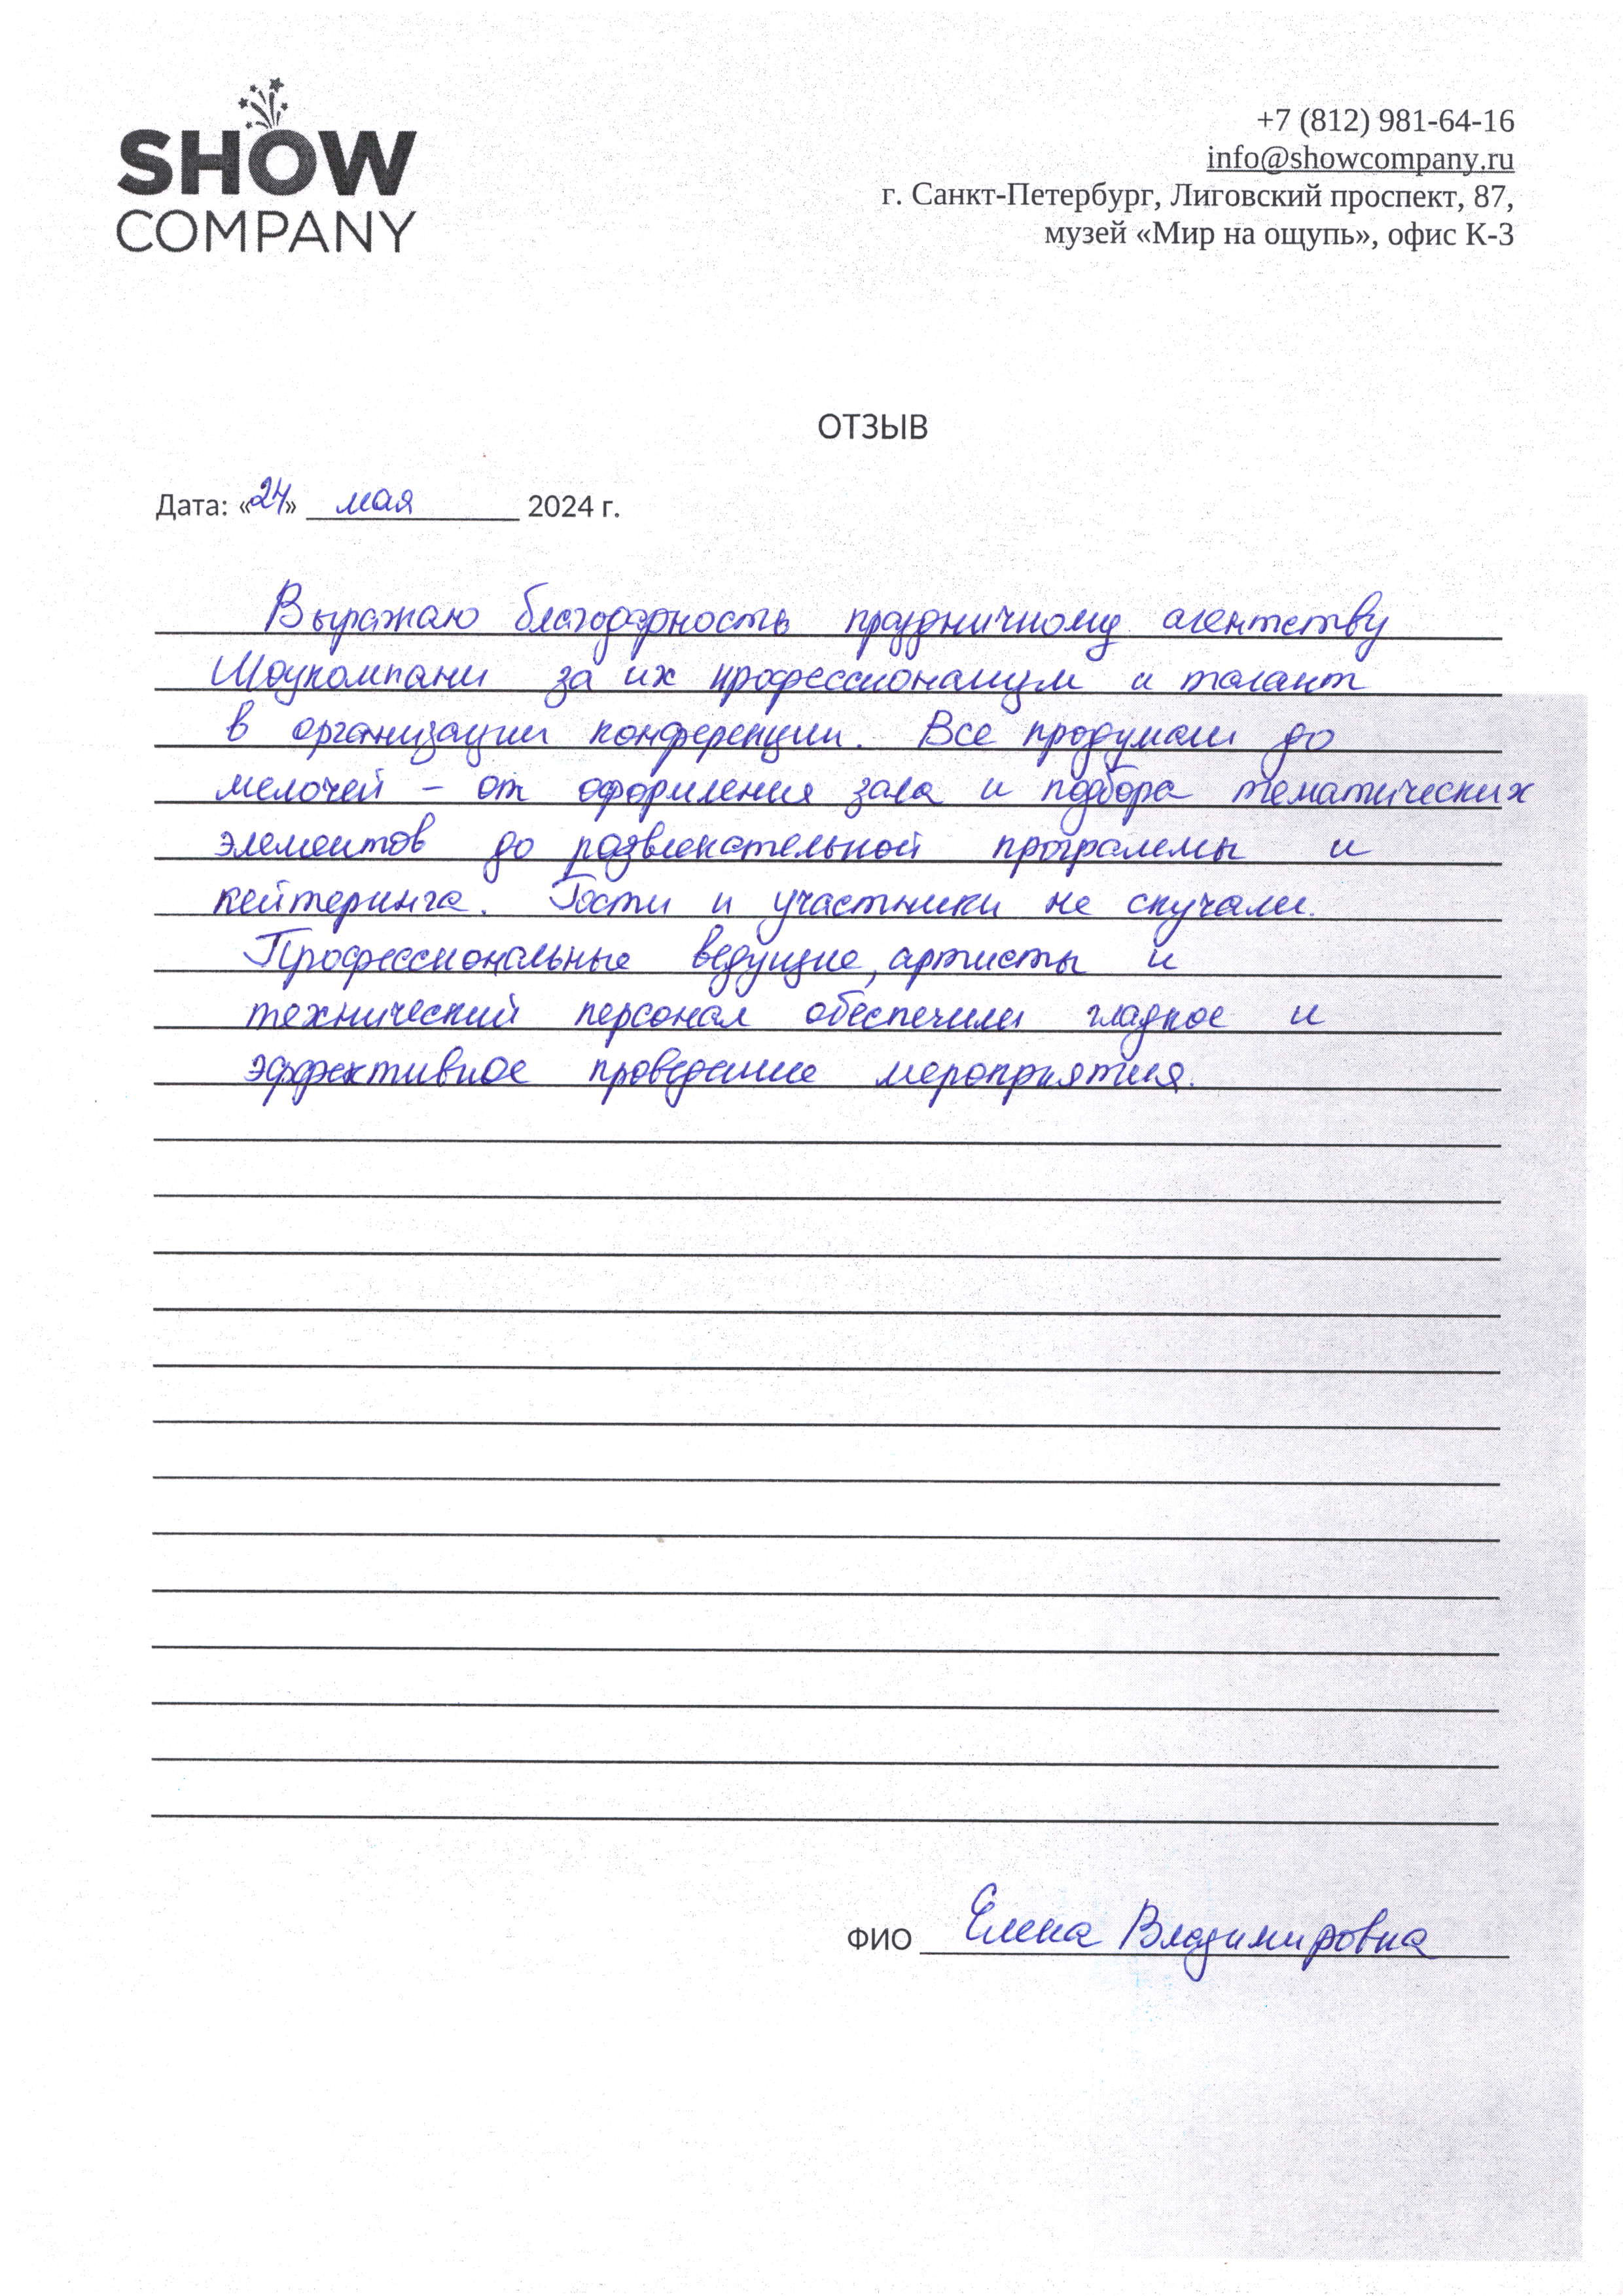 SHOW
COMPANY
+7 (812) 981-64-16
info@showcompany.ru
г. Санкт-Петербург, Лиговский проспект, 87,
музей «Мир на ощупь», офис К-3
ОТЗЫВ
Дата: «24» мая 2024 г.
Выражаю благодарность праздничному агентству
Шоукомпани за их профессионализм и талант
в организации конференции. Все продумали до
мелочей – от оформления зала и подбора тематических
элементов до развлекательной программы и
кейтеринга. Гости и участники не скучали.
Профессиональные ведущие, артисты и
технический персонал обеспечили гладкое и
эффективное проведение мероприятия.
ФИО Елена Владимировна